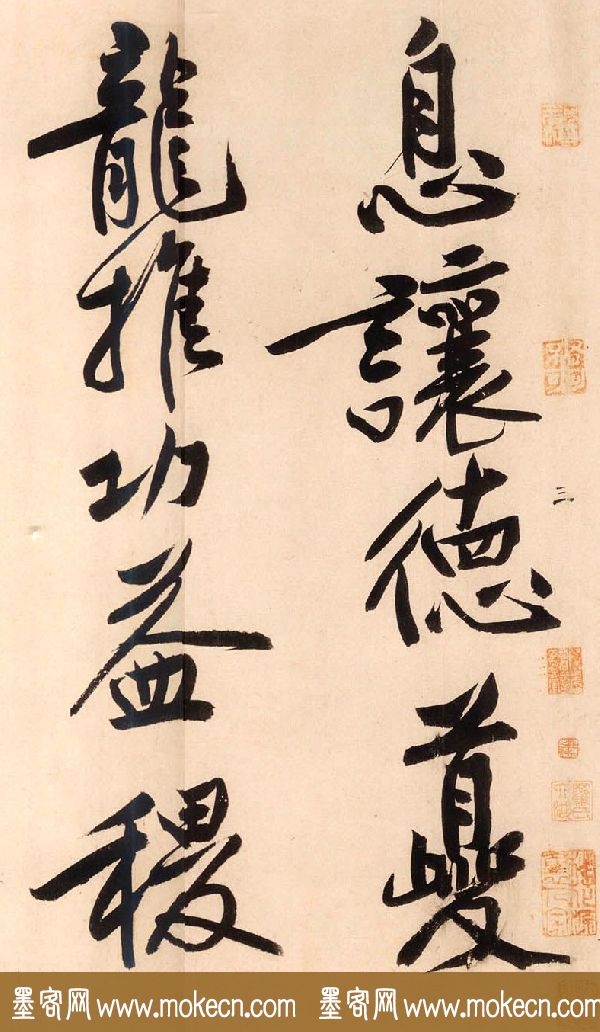 息讓德夔
龍推功益稷
三
墨客网 www.mokecn.com 墨客网 www.mokecn.com